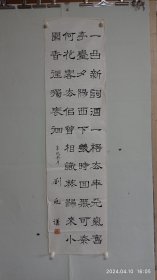 一曲新詞酒一桮去年天氣舊
亭臺夕陽西下幾時回無可奈
何花落去佀曾相識燕歸來小
園香徑獨裵佪
劉
2024.04.10 16:05